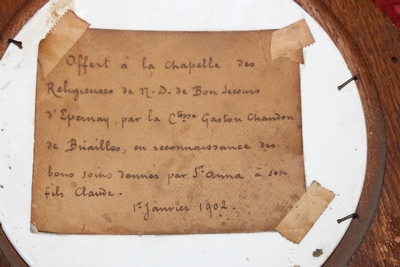 Offert à la chapelle des
Religieuses de N.D. de Bon Secours
d'Epernay, par la Ctesse Gaston Chandon
de Briailles, en reconnaissance des
bons soins donnés par Sr Anna à son
fils Claude.
1er Janvier 1902.